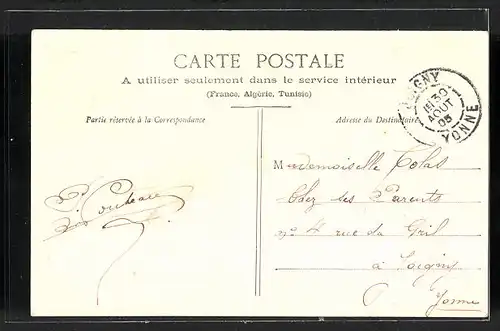 CARTE POSTALE
A utiliser seulement dans le service intérieur
(France, Algérie, Tunisie)
Partie réservée à la Correspondance
Adresse du Destinataire
IGNY
30
AOUT
05
YONNE
Mademoiselle Colas
Chez ses Parents
nº 4 rue du Gril
à Joigny
Yonne